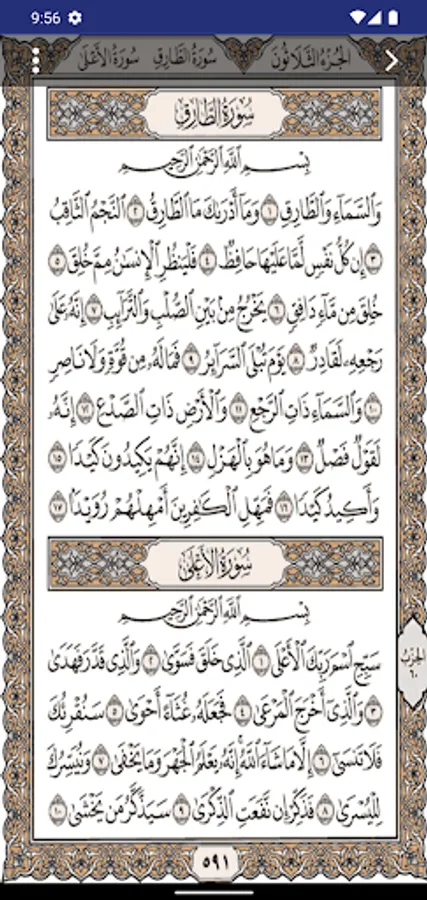 9:56
الجزء الثلاثون سورة الطارق سورة الأعلى
سُورَةُ الطَّارِقِ
بِسْمِ ٱللَّهِ ٱلرَّحْمَٰنِ ٱلرَّحِيمِ
وَٱلسَّمَآءِ وَٱلطَّارِقِ ١ وَمَآ أَدْرَىٰكَ مَا ٱلطَّارِقُ ٢ ٱلنَّجْمُ ٱلثَّاقِبُ
٣ إِن كُلُّ نَفْسٍ لَّمَّا عَلَيْهَا حَافِظٌ ٤ فَلْيَنظُرِ ٱلْإِنسَٰنُ مِمَّ خُلِقَ ٥
خُلِقَ مِن مَّآءٍ دَافِقٍ ٦ يَخْرُجُ مِنۢ بَيْنِ ٱلصُّلْبِ وَٱلتَّرَآئِبِ ٧ إِنَّهُۥ عَلَىٰ
رَجْعِهِۦ لَقَادِرٌ ٨ يَوْمَ تُبْلَى ٱلسَّرَآئِرُ ٩ فَمَا لَهُۥ مِن قُوَّةٍ وَلَا نَاصِرٍ
١٠ وَٱلسَّمَآءِ ذَاتِ ٱلرَّجْعِ ١١ وَٱلْأَرْضِ ذَاتِ ٱلصَّدْعِ ١٢ إِنَّهُۥ
لَقَوْلٌ فَصْلٌ ١٣ وَمَا هُوَ بِٱلْهَزْلِ ١٤ إِنَّهُمْ يَكِيدُونَ كَيْدًا ١٥
وَأَكِيدُ كَيْدًا ١٦ فَمَهِّلِ ٱلْكَٰفِرِينَ أَمْهِلْهُمْ رُوَيْدًۢا ١٧
سُورَةُ الأَعْلَى
بِسْمِ ٱللَّهِ ٱلرَّحْمَٰنِ ٱلرَّحِيمِ
سَبِّحِ ٱسْمَ رَبِّكَ ٱلْأَعْلَى ١ ٱلَّذِى خَلَقَ فَسَوَّىٰ ٢ وَٱلَّذِى قَدَّرَ فَهَدَىٰ
٣ وَٱلَّذِىٓ أَخْرَجَ ٱلْمَرْعَىٰ ٤ فَجَعَلَهُۥ غُثَآءً أَحْوَىٰ ٥ سَنُقْرِئُكَ
فَلَا تَنسَىٰٓ ٦ إِلَّا مَا شَآءَ ٱللَّهُ إِنَّهُۥ يَعْلَمُ ٱلْجَهْرَ وَمَا يَخْفَىٰ ٧ وَنُيَسِّرُكَ
لِلْيُسْرَىٰ ٨ فَذَكِّرْ إِن نَّفَعَتِ ٱلذِّكْرَىٰ ٩ سَيَذَّكَّرُ مَن يَخْشَىٰ ١٠
الحزب
٦٠
٥٩١